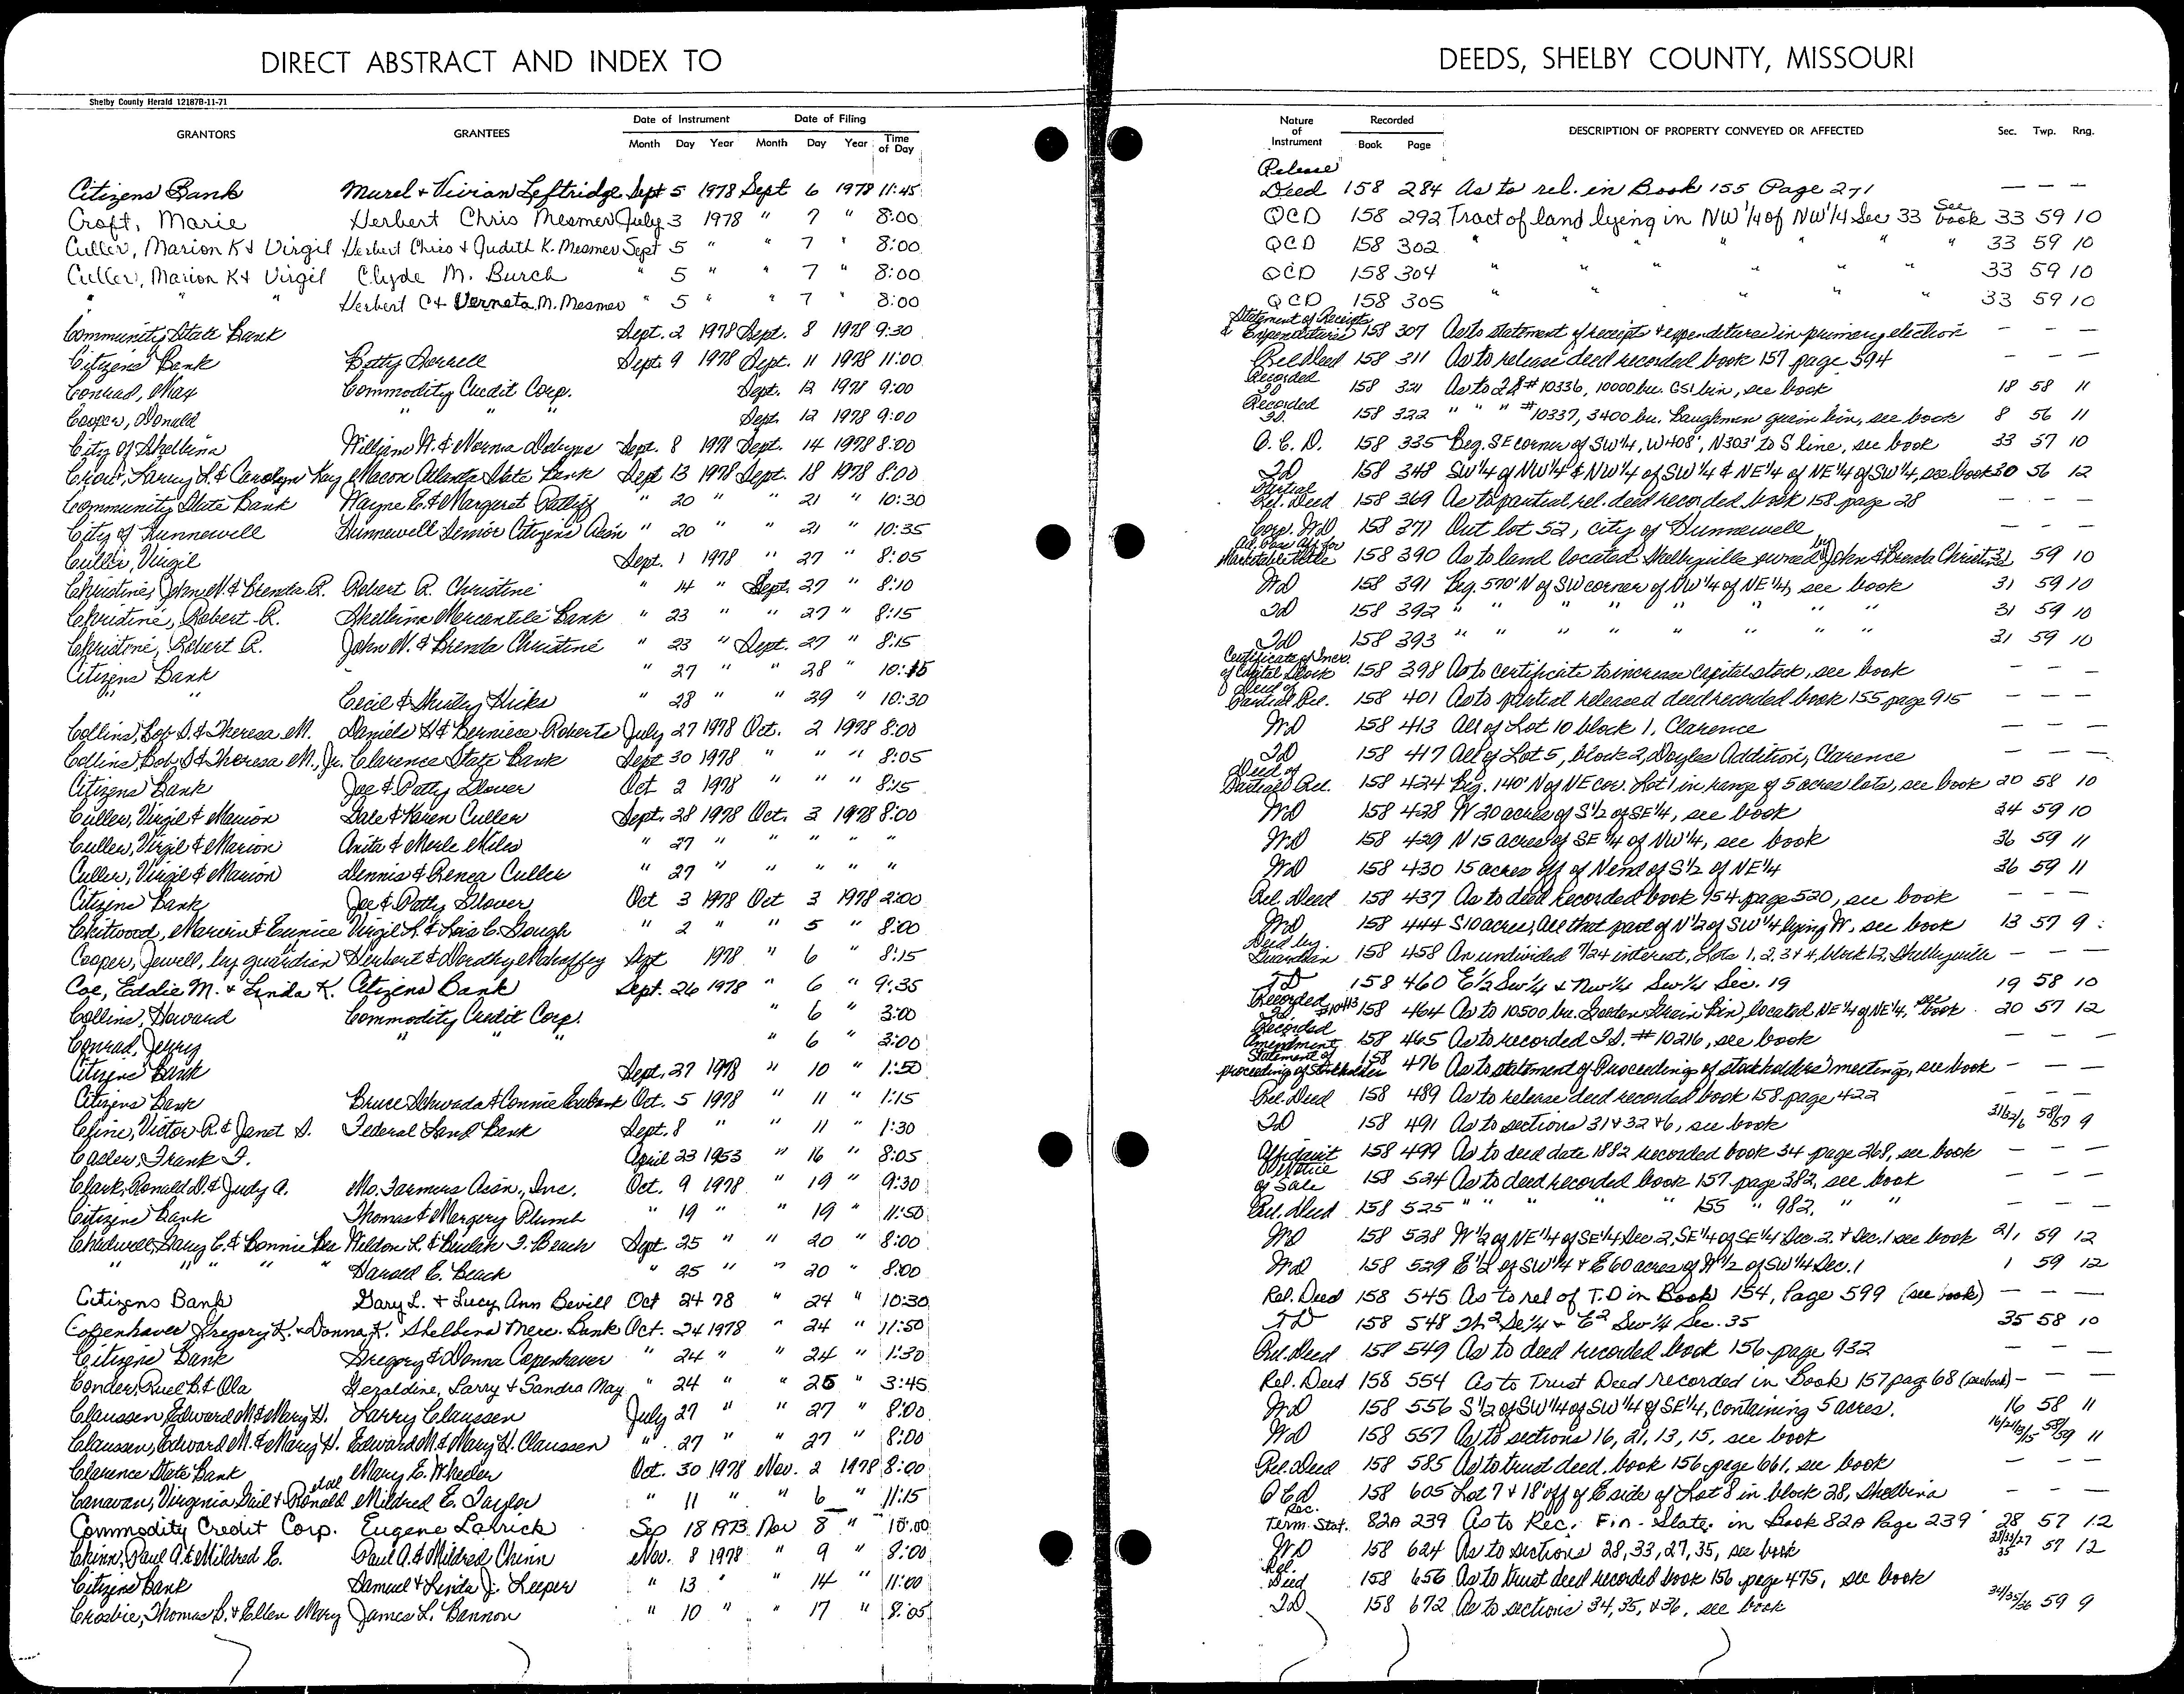 DIRECT ABSTRACT AND INDEX TO
Shelby County Herald 12187B-11-71
GRANTORS GRANTEES Date of Instrument Date of Filing
Month Day Year Month Day Year Time of Day
Citizens Bank Murel + Vivian Leftridge Sept 5 1978 Sept 6 1978 11:45
Croft, Marie Herbert Chris Mesmer July 3 1978 " 7 " 8:00
Culler, Marion K + Virgil Herbert Chris + Judith K. Mesmer Sept 5 " " 7 " 8:00
Culler, Marion K + Virgil Clyde M. Burch " 5 " " 7 " 8:00
" " " Herbert C + Verneta M. Mesmer " 5 " " 7 " 8:00
Community State Bank Sept. 2 1978 Sept. 8 1978 9:30
Citizens Bank Betty Sorrell Sept. 9 1978 Sept. 11 1978 11:00
Conrad, Max Commodity Credit Corp. Sept. 12 1978 9:00
Cooper, Donald " " " Sept. 12 1978 9:00
City Of Shelbina William W. & Norma Sept. 8 1978 Sept. 14 1978 8:00
Larry L. & Carolyn Kay Macon Atlanta State Bank Sept 13 1978 Sept. 18 1978 8:00
Community State Bank Wayne E. & Margaret Ratliff " 20 " " 21 " 10:30
City of Hunnewell Hunnewell Senior Citizens Assn " 20 " " 21 " 10:35
Culler, Virgil Sept. 1 1978 " 27 " 8:05
Christine, John N. & Brenda R. Robert R. Christine " 14 " Sept. 27 " 8:10
Christine, Robert R. Shelbina Mercantile Bank " 23 " " 27 " 8:15
Christine, Robert R. John N. & Brenda Christine " 23 " Sept. 27 " 8:15
Citizens Bank " 27 " " 28 " 10:15
" " Cecil & Shirley Hicks " 28 " " 29 " 10:30
Collins, Bob S. & Theresa M. Daniels H & Berniece Roberts July 27 1978 Oct. 2 1978 8:00
Collins, Bob S & Theresa M., Jr. Clarence State Bank Sept 30 1978 " " " 8:05
Citizens Bank Joe & Patty Glover Oct 2 1978 " " " 8:15
Culler, Virgil & Marion Dale & Karen Culler Sept. 28 1978 Oct. 3 1978 8:00
Culler, Virgil & Marion Anita & Merle Miles " 27 " " " " "
Culler, Virgil & Marion Dennis & Renea Culler " 27 " " " " "
Citizens Bank Joe & Patty Glover Oct 3 1978 Oct 3 1978 2:00
Chitwood, Marvin & Eunice Virgil L. & Lois C. Gough " 2 " " 5 " 8:00
Cooper, Jewell, by guardian Herbert & Dorothy Mahaffey Sept 1978 " 6 " 8:15
Coe, Eddie M. + Linda K. Citizens Bank Sept. 26 1978 " 6 " 9:35
Collins, Howard Commodity Credit Corp. " 6 " 3:00
Conrad, Jerry " " " " 6 " 3:00
Citizens Bank Sept. 27 1978 " 10 " 1:50
Citizens Bank Bruce Schwada & Connie Eubank Oct. 5 1978 " 11 " 1:15
Cline, Victor R. & Janet S. Federal Land Bank Sept. 8 " " 11 " 1:30
Casler, Frank J. April 23 1953 " 16 " 8:05
Clark, Ronald D. & Judy A. Mo. Farmers Assn., Inc. Oct. 9 1978 " 19 " 9:30
Citizens Bank Thomas & Margery Plumb " 19 " " 19 " 11:50
Chadwell, Gary C. & Bonnie Bea Weldon L. & Beulah I. Beach Sept. 25 " " 20 " 8:00
" " " " " Harold E. Beach " 25 " " 20 " 8:00
Citizens Bank Gary L. + Lucy Ann Bevill Oct 24 78 " 24 " 10:30
Copenhaver Gregory K. + Donna K. Shelbina Merc. Bank Oct. 24 1978 " 24 " 11:50
Citizens Bank Gregory & Donna Copenhaver " 24 " " 24 " 1:30
Conder, Ruel B. & Ola Geraldine, Larry + Sandra May " 24 " " 25 " 3:45
Claussen, Edward M & Mary H. Larry Claussen July 27 " " 27 " 8:00
Claussen, Edward M. & Mary H. Edward M. & Mary H. Claussen " 27 " " 27 " 8:00
Clarence State Bank Mary E. Wheeler Oct. 30 1978 Nov. 2 1978 8:00
Canavan, Virginia Gail & Ronald etal Mildred E. Taylor " 11 " " 6 " 11:15
Commodity Credit Corp. Eugene Larrick Sep 18 1973 Nov 8 " 10:00
Chinn, Paul A. & Mildred E. Paul A. & Mildred Chinn Nov. 8 1978 " 9 " 8:00
Citizens Bank Samuel & Linda J. Leeper " 13 " " 14 " 11:00
Crosbie, Thomas B. + Ellen Mary James L. Bannon " 10 " " 17 " 8:05
DEEDS, SHELBY COUNTY, MISSOURI
Nature of Instrument Recorded DESCRIPTION OF PROPERTY CONVEYED OR AFFECTED Sec. Twp. Rng.
Book Page
Release Deed 158 284 As to rel. in Book 155 Page 271 — — —
QCD 158 292 Tract of land lying in NW 1/4 of NW 1/4 Sec 33 See book 33 59 10
QCD 158 302 " " " " " " " 33 59 10
QCD 158 304 " " " " " " " 33 59 10
QCD 158 305 " " " " " 33 59 10
Statement of Receipts & Expenditures 158 307 As to statement of receipts & expenditures in primary election — — —
Rel. Deed 158 311 As to release deed recorded book 157 page 594 — — —
Recorded 158 321 As to #10336, 10000 bu. GSI bin, see book 18 58 11
Recorded 158 322 " " " #10337, 3400 bu. Baughman grain bin, see book 8 56 11
Q. C. D. 158 335 Beg. SE corner of SW 1/4, W 408', N 303' to S line, see book 33 57 10
TD 158 348 SW 1/4 of NW 1/4 & NW 1/4 of SW 1/4 & NE 1/4 of NE 1/4 of SW 1/4, see book 30 56 12
Partial Rel. Deed 158 369 As to partial rel. deed recorded book 158 page 28 — — —
Corp. WD 158 371 Out lot 52, city of Hunnewell — — —
Marketable Title 158 390 As to land located Shelbyville owned by John & Brenda Christine 31 59 10
WD 158 391 Beg. 570' N of SW corner of NW 1/4 of NE 1/4, see book 31 59 10
TD 158 392 " " " " " " " " 31 59 10
TD 158 393 " " " " " " " " 31 59 10
Certificate of Incr. of Capital Stock 158 398 As to certificate to increase capital stock, see book — — —
Deed of Partial Rel. 158 401 As to partial released deed recorded book 155 page 915 — — —
WD 158 413 All of Lot 10 block 1, Clarence — — —
TD 158 417 All of Lot 5, block 2, Doyles Addition, Clarence — — —
Deed of Partial Rel. 158 424 Beg. 140' N of NE cor. Lot 1 in range of 5 acres lots, see book 20 58 10
WD 158 428 W 20 acres of S 1/2 of SE 1/4, see book 24 59 10
WD 158 429 N 15 acres of SE 1/4 of NW 1/4, see book 36 59 11
WD 158 430 15 acres off of N end of S 1/2 of NE 1/4 36 59 11
Rel. Deed 158 437 As to deed recorded book 154 page 520, see book — — —
WD 158 444 S 10 acres, All that part of N 1/2 of SW 1/4 lying W, see book 13 57 9
Deed by Guardian 158 458 An undivided 1/24 interest, Lots 1, 2, 3 & 4, block 12, Shelbyville — — —
TD 158 460 E 1/2 SW 1/4 & NW 1/4 SW 1/4 Sec. 19 19 58 10
Recorded 158 464 As to 10500 bu. Golden Grain Bin, located NE 1/4 of NE 1/4, see book 20 57 12
Recorded Amendment 158 465 As to recorded #10216, see book — — —
Statement of proceeding of Stockholder 158 476 As to statement of Proceedings of stockholders' meeting, see book — — —
Rel. Deed 158 489 As to release deed recorded book 158 page 422 — — —
TD 158 491 As to sections 31 & 32 & 6, see book 31/32/6 58/57 9
Affidavit 158 499 As to deed date 1882 recorded book 34 page 268, see book — — —
Notice of Sale 158 524 As to deed recorded book 157 page 382, see book — — —
Rel. Deed 158 525 " " " " " 155 " 982, " " — — —
WD 158 528 W 1/2 of NE 1/4 of SE 1/4 Sec. 2, SE 1/4 of SE 1/4 Sec. 2. & Sec. 1 see book 2/1 59 12
WD 158 529 E 1/2 of SW 1/4 & E 60 acres of W 1/2 of SW 1/4 Sec. 1 1 59 12
Rel. Deed 158 545 As to rel of T.D in Book 154, Page 599 (see book) — — —
TD 158 548 W 2 SE 1/4 & E 2 SW 1/4 Sec. 35 35 58 10
Rel. Deed 158 549 As to deed recorded book 156 page 932 — — —
Rel. Deed 158 554 As to Trust Deed recorded in Book 157 page 68 (see book) — — —
WD 158 556 S 1/2 of SW 1/4 of SW 1/4 of SE 1/4, containing 5 acres. 16 58 11
WD 158 557 As to sections 16, 21, 13, 15, see book 16/21/13/15 58/59 11
Rel. Deed 158 585 As to trust deed, book 156 page 661, see book — — —
QCD 158 605 Lot 7 & 18' off of E side of Lot 8 in block 28, Shelbina — — —
Rec. Term. Stat. 82A 239 As to Rec. Fin. State. in Book 82A Page 239 28 57 12
WD 158 624 As to sections 28, 33, 27, 35, see book 28/33/27 35 57 12
Rel. Deed 158 656 As to trust deed recorded book 156 page 475, see book
TD 158 672 As to sections 34, 35, & 36, see book 34/35/36 59 9